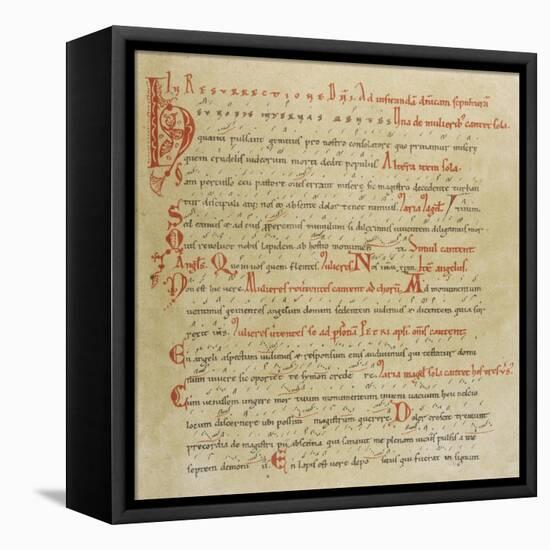 In Resurrectione Dñi. Ad visitandā dñicam sepulturā
una de mulierib; cantet sola.
quaria pulsant gemitus pro nostro consolatore quo priuamur miserę
quem crudelis iudeorum morti dedit populus Altera item sola.
am percusso ceu pastore oues errant miserę sic magistro decedente turban
tur discipuli atq; nos eo absente dolor tenet nimius. Maria Magd.
camus et ad eius properemus tumulum si dileximus uiuentem diligamus mor
Quis reuoluet nobis lapidem ab hostio monumen ta. Simul cantent.
Angls. Quem uos quem flentes. Mulieres Nos Item angelus.
Non est hic uere. Mulieres reuertentes cantent ad chorū. Ad monumentum
uenimus gementes angelum domini sedentem uidimus et dicentem quia sur
rexit ihs. Mulieres uertentes se ad psonā Petri apli oms cantent
En angeli aspectum uidimus et responsum eius audiuimus qui testatur domi
num uiuere sic oportet te symon crede re. Maria magd sola cantet hos uersus.
Cum uenissem ungere mor tuum monumentum inueni uacuum heu nescio
locum discernere ubi possim magistrum querere. Dolor crescit tremunt
precordia de magistri pii absentia qui sanauit me plenam uiciis pulsis a me
septem demoni is. En lapis est uere depo situs qui fuerat in signum